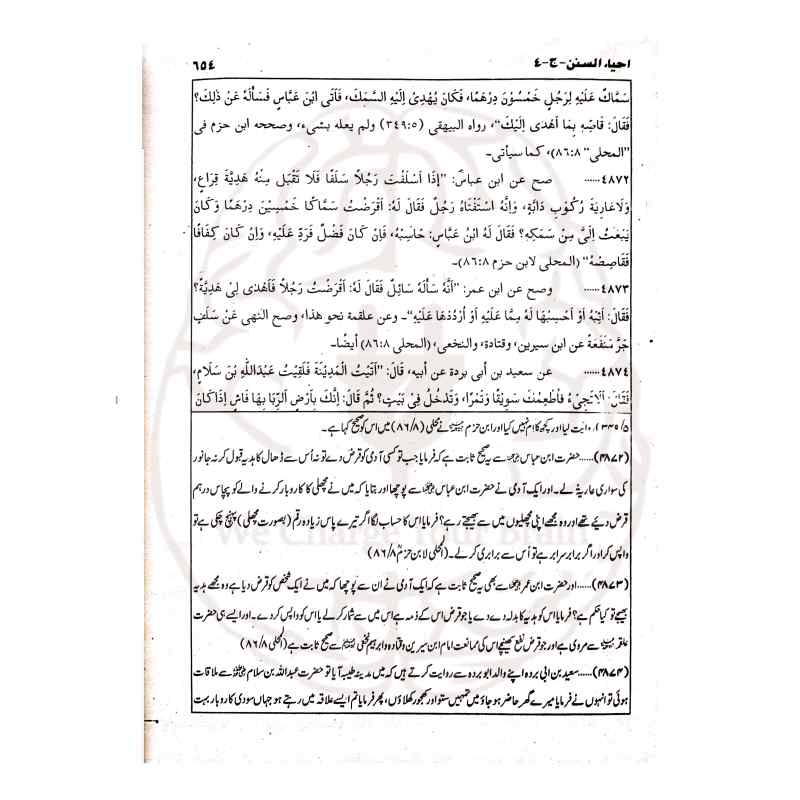 احیاء السنن-ج-٤ ٦٥٤
سَمَّاكٌ عَلَيْهِ لِرَجُلٍ خَمْسُوْنَ دِرْهَمًا، فَكَانَ يُهْدِىْ اِلَيْهِ السَّمَكَ، فَاَتَى ابْنَ عَبَّاسٍ فَسَأَلَهُ عَنْ ذٰلِكَ؟
فَقَالَ: قَاصِّهٖ بِمَا اَهْدٰى اِلَيْكَ“، رواه البيهقى (٣٤٩:٥) ولم يعله بشىء، وصححه ابن حزم فى
”المحلى“ ٨٦:٨)، كما سيأتى۔
٤٨٧٢...... صح عن ابن عباسؓ: ”إِذَا اَسْلَفْتَ رَجُلاً سَلَفًا فَلَا تَقْبَلْ مِنْهُ هَدِيَّةَ قِرَاعٍ،
وَلَاعَارِيَةَ رُكُوْبِ دَابَّةٍ، وَإِنَّهُ اسْتَفْتَاهُ رَجُلٌ فَقَالَ لَهُ: اَقْرَضْتُ سَمَّاكًا خَمْسِيْنَ دِرْهَمًا وَكَانَ
يَبْعَثُ اِلَىَّ مِنْ سَمَكِهٖ؟ فَقَالَ لَهُ ابْنُ عَبَّاسٍ: حَاسِبْهُ، فَإِنْ كَانَ فَضْلٌ فَرَدَّ عَلَيْهِ، وَإِنْ كَانَ كَفَافًا
فَقَاصِصْهُ“ (المحلى لابن حزم ٨٦:٨)
٤٨٧٣...... وصح عن ابن عمر: ”أَنَّهُ سَأَلَهُ سَائِلٌ فَقَالَ لَهُ: اَقْرَضْتُ رَجُلاً فَاَهْدٰى لِىْ هَدِيَّةً؟
فَقَالَ: اَثِبْهُ أَوْ اَحْسِبْهَا لَهُ مِمَّا عَلَيْهِ أَوْ اُرْدُدْهَا عَلَيْهِ“۔ وعن علقمة نحو هذا، وصح النهى عَنْ سَلَفٍ
جَرَّ مَنْفَعَةً عن ابن سيرين، وقتادة، والنخعى، (المحلى ٨٦:٨) أيضًا۔
٤٨٧٤...... عن سعيد بن أبى بردة عن أبيه، قَالَ: ”أَتَيْتُ الْمَدِيْنَةَ فَلَقِيْتُ عَبْدَاللّٰهِ بْنَ سَلَامٍ،
فَقَالَ: اَلَاتَجِىْءُ فَاُطْعِمَكَ سَوِيْقًا وَتَمْرًا، وَتَدْخُلُ فِىْ بَيْتٍ؟ ثُمَّ قَالَ: إِنَّكَ بِأَرْضٍ اَلرِّبَا بِهَا فَاشٍ اِذَا كَانَ
میں اس کو صحیح کہا ہے۔
(۴۸۷۲)......حضرت ابن عباسؓ سے یہ صحیح ثابت ہے کہ فرمایا جب تو کسی آدمی کو قرض دے تو نہ اُس سے ڈھال کا ہدیہ قبول کر نہ جانور
کی سواری عاریۃ لے۔ اور ایک آدمی نے حضرت ابن عباسؓ سے پوچھا اور بتایا کہ میں نے مچھلی کا کاروبار کرنے والے کو پچاس درہم
قرض دیئے تھے اور وہ مجھے اپنی مچھلیوں میں سے بھیجتے رہے؟ فرمایا اس کا حساب لگا اگر تیرے پاس زیادہ رقم (بصورت مچھلی) پہنچ چکی ہے تو
واپس کر اور اگر برابر سرابر ہے تو اُس سے برابری کر لے۔ (المحلی لابن حزمؒ ۸۶/۸)
(۴۸۷۳)......اور حضرت ابن عمرؓ سے بھی یہ صحیح ثابت ہے کہ ایک آدمی نے ان سے پوچھا کہ میں نے ایک شخص کو قرض دیا ہے وہ مجھے ہدیہ
بھیجے تو کیا حکم ہے؟ فرمایا اس کو ہدیہ کا بدلہ دے دے یا جو قرض اس کے ذمہ ہے اس میں سے شمار کر لے یا اس کو واپس کر دے۔ اور ایسے ہی حضرت
علقمہؒ سے مروی ہے اور جو قرض نفع کھینچے اس کی ممانعت امام ابن سیرین و قتادہ و ابرہیم نخعیؒ سے صحیح ثابت ہے (المحلی ۸۶/۸)
(۴۸۷۴)......سعید بن ابی بردہ اپنے والد ابو بردہ سے روایت کرتے ہیں کہ میں مدینہ طیبہ آیا تو حضرت عبداللہ بن سلامؓ سے ملاقات
ہوئی تو انہوں نے فرمایا میرے گھر حاضر ہو جاؤ میں تمہیں ستو اور کھجور کھلاؤں، پھر فرمایا تم ایسے علاقہ میں رہتے ہو جہاں سودی کاروبار بہت